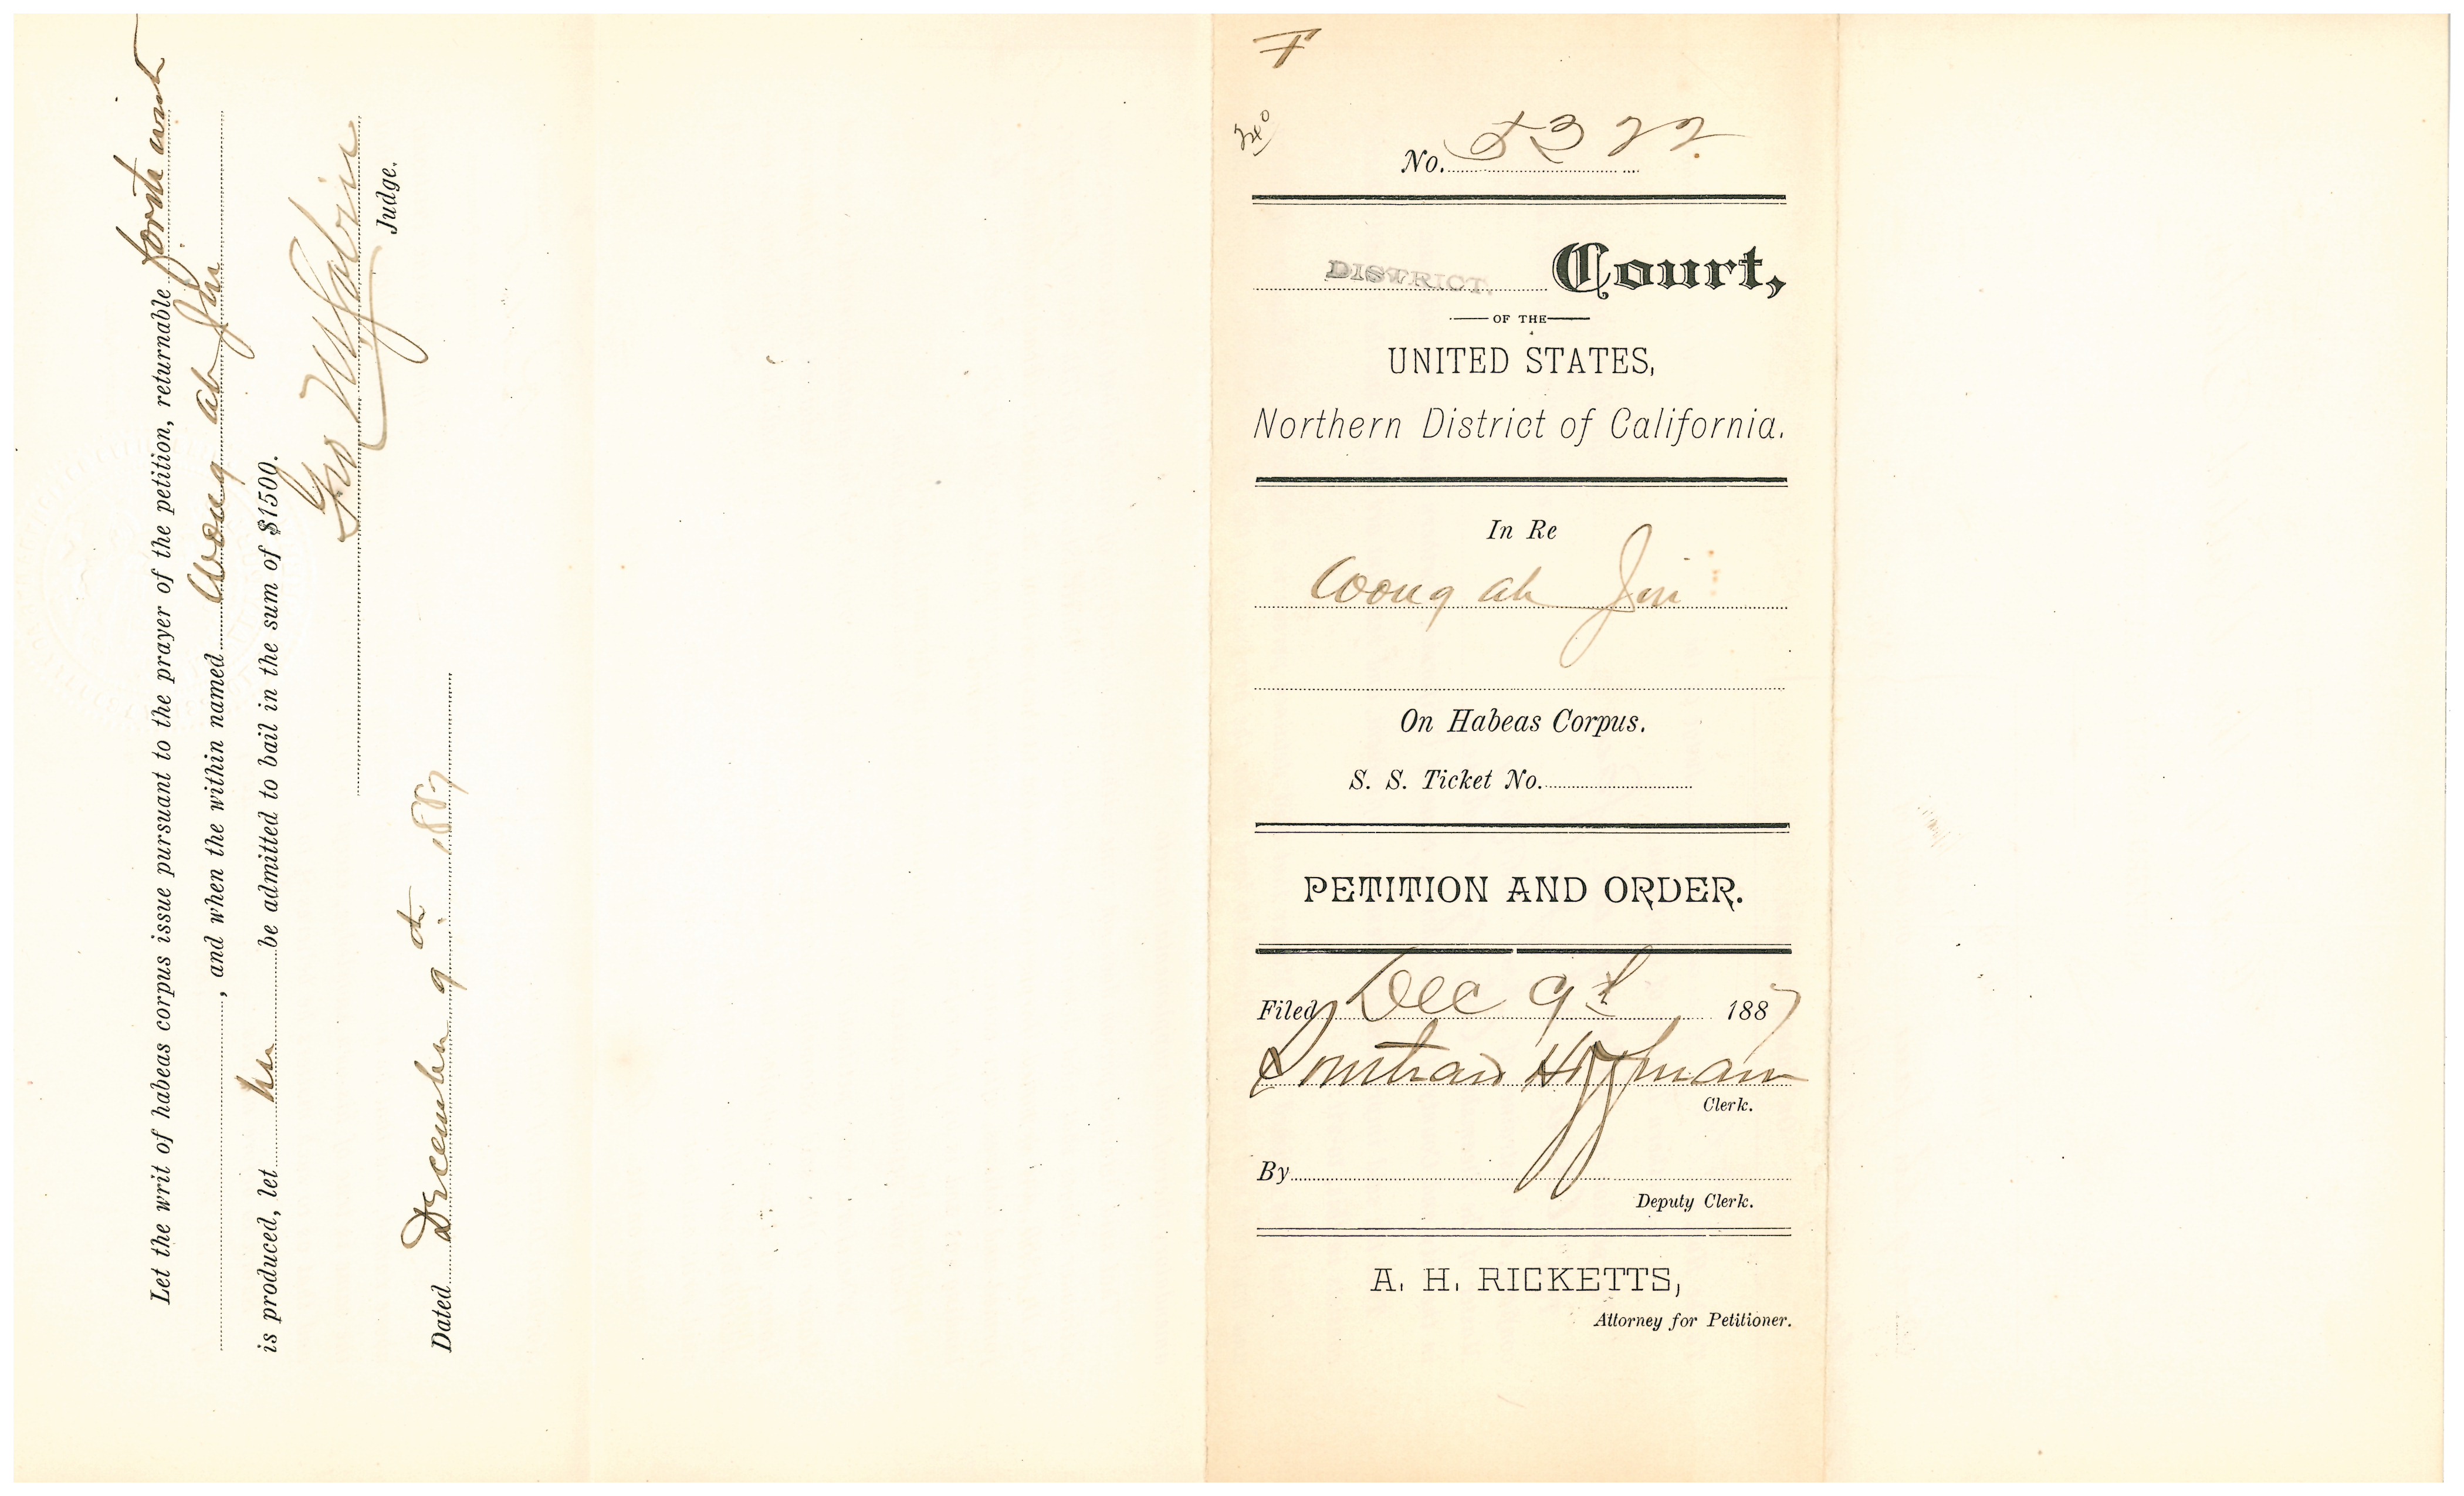 Let the writ of habeas corpus issue pursuant to the prayer of the petition, returnable forthwith
, and when the within named Wong Ah Jin
is produced, let him be admitted to bail in the sum of $1500.
Geo M Sabin
Judge.
Dated December 9th 1887
F
No. 5322
DISTRICT. Court,
OF THE
UNITED STATES,
Northern District of California.
In Re
Wong Ah Jin
On Habeas Corpus.
S. S. Ticket No.
PETITION AND ORDER.
Filed Dec 9th 1887
Southard Hoffman
Clerk.
By
Deputy Clerk.
A. H. RICKETTS,
Attorney for Petitioner.